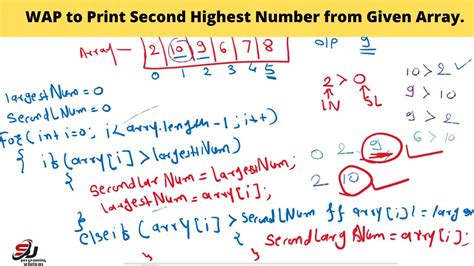 WAP to Print Second Highest Number from Given Array.
Array 2 10 9 6 7 8 O/P 9
0 1 2 3 4 5
largestNum=0
SecondLNum=0
for(int i=0; i<arry.length-1; i++)
{ if(arry[i]>largestNum)
{ SecondLarNum=largestNum;
largestNum=arry[i];
}
elseif(arry[i]>secondLNum && arry[i]!=larg
{ SecondLargNum=arry[i];
2 > 0
LN SL
10 > 2
9 > 2
8 > 2
6 > 10
0 2 9
2 10
SJ
programming
solutions